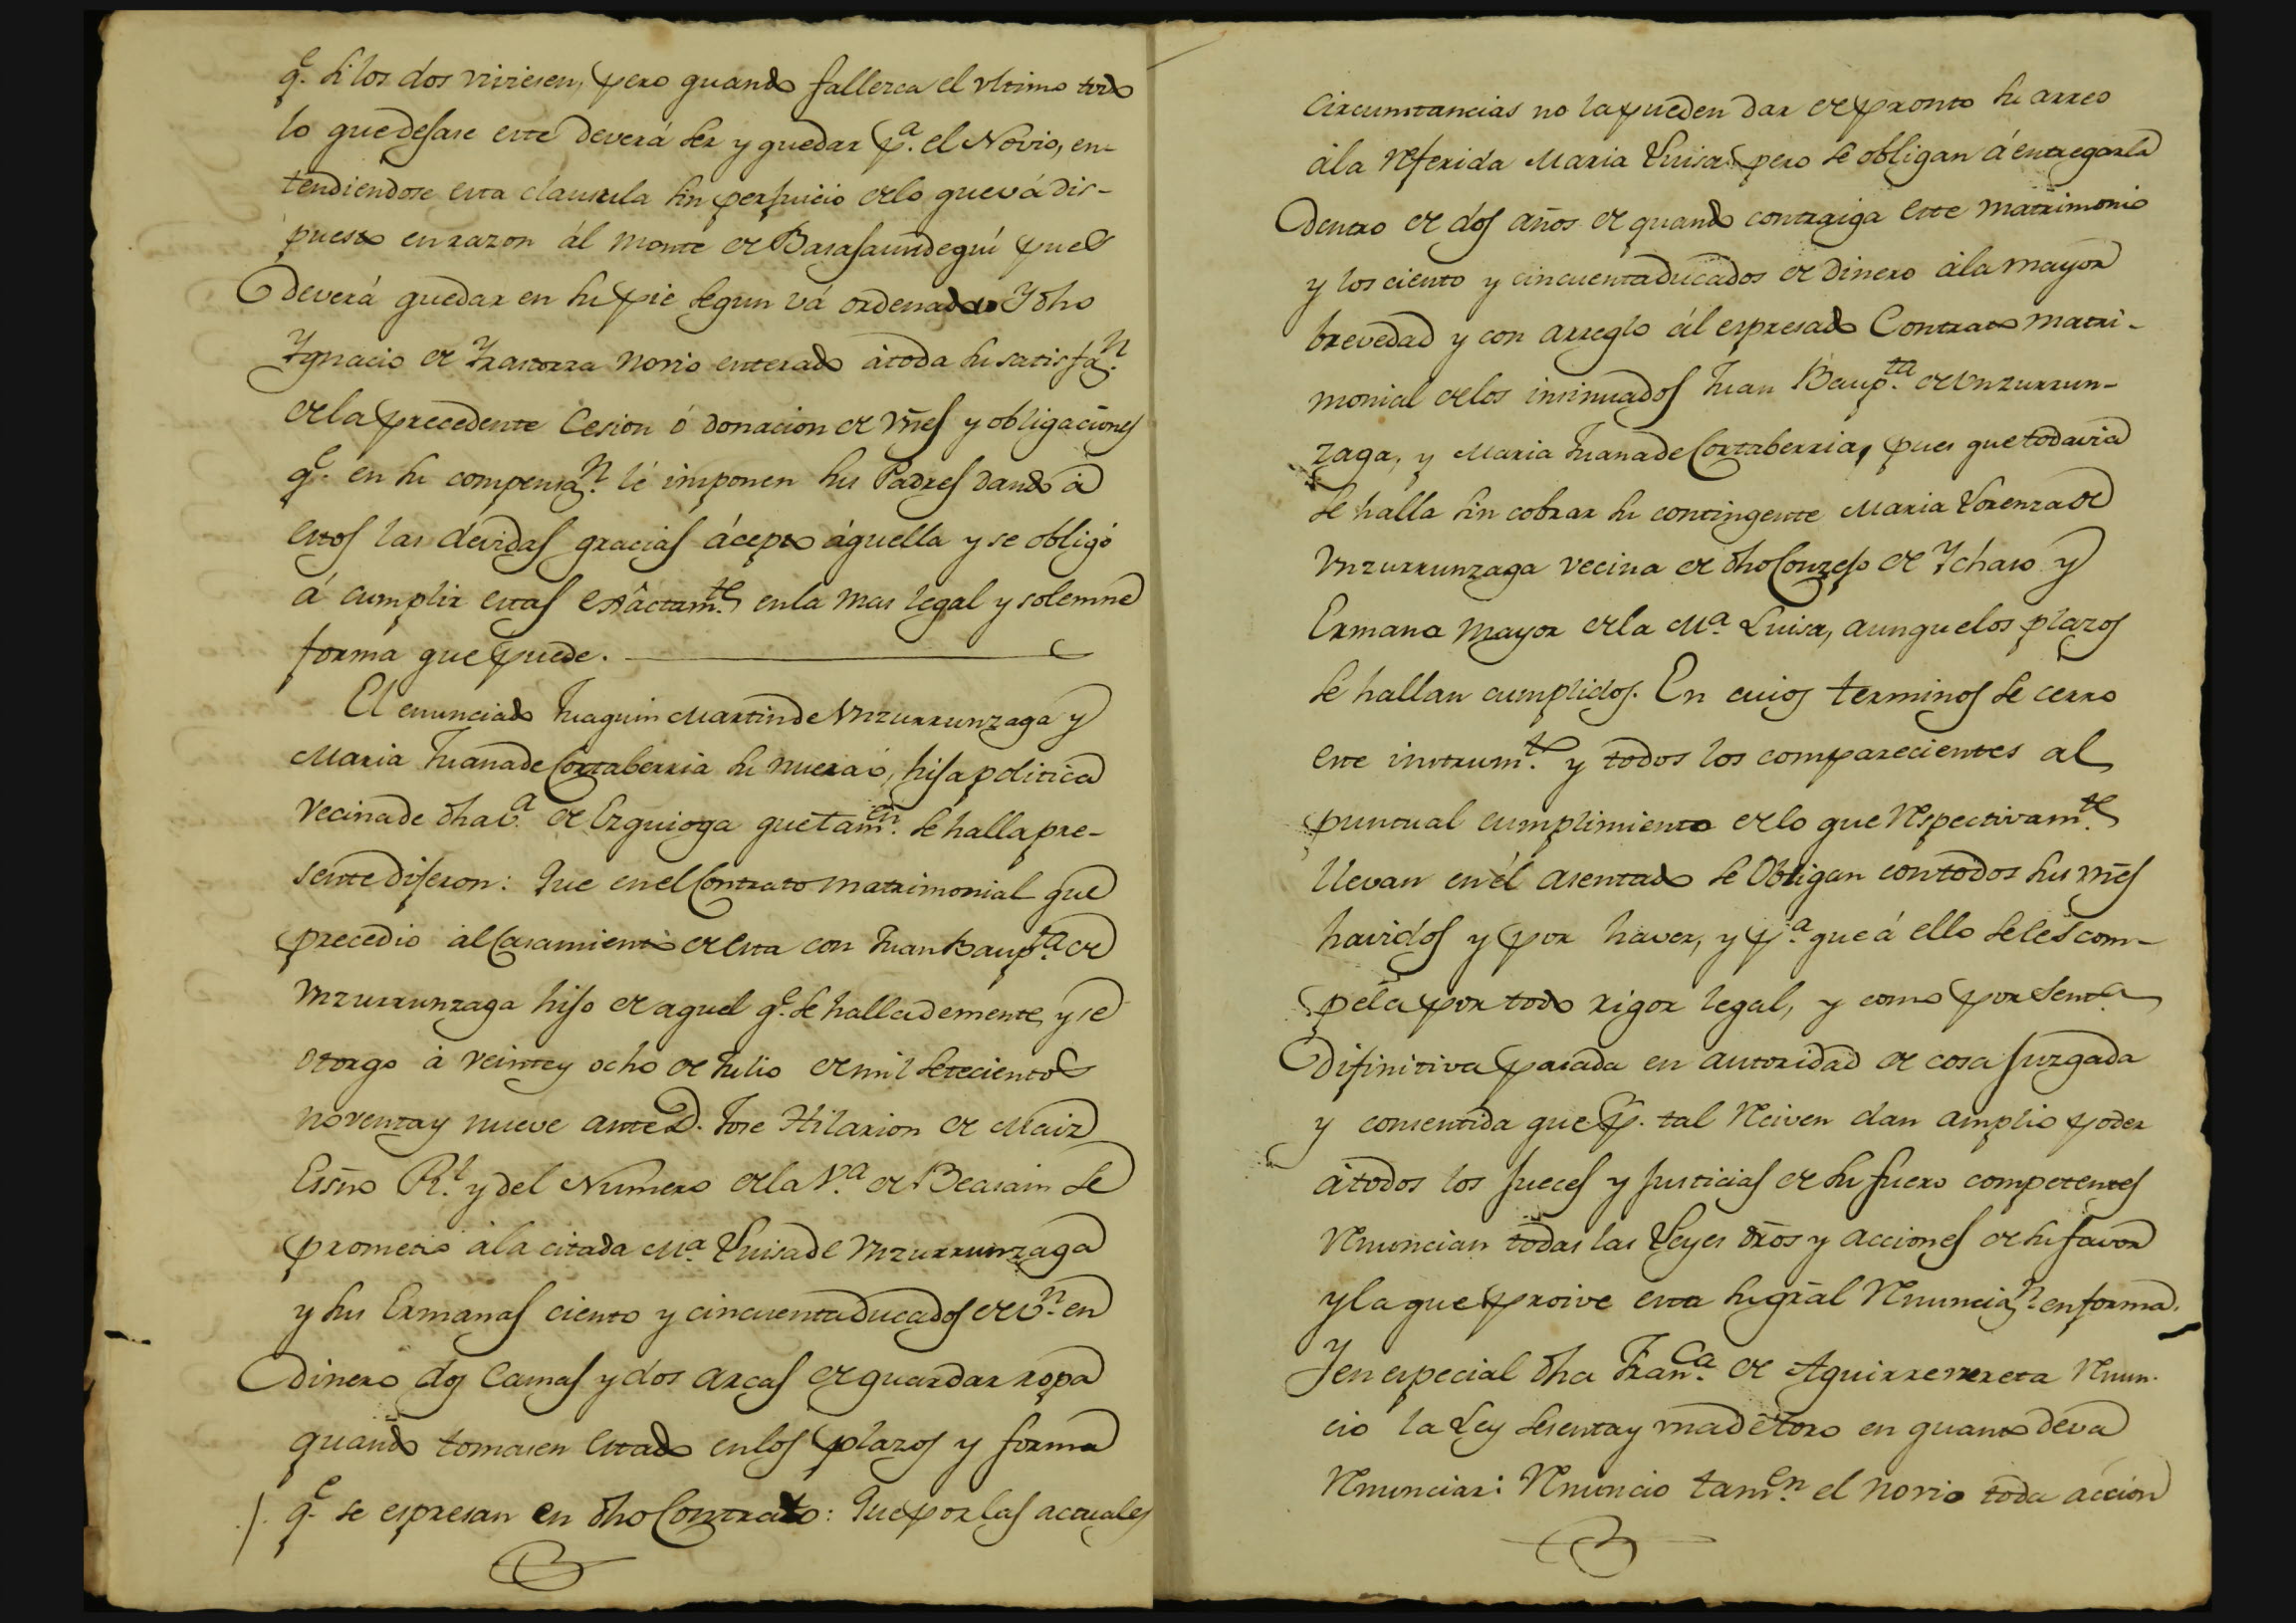 q.e si los dos viviesen, pero quando fallezca el ultimo todo
lo que dejase este deverá ser y quedar p.a el Novio, en-
tendiendose esta clausula sin perjuicio de lo que vá dis-
puesto en razon ál monte de Barasaundeguí pues
deverá quedar en su pie segun vá ordenado Y dho
Ygnacio de Yrastorza novio enterado átoda su satisfaz.n
de la precedente Cesion ó donacion de vñes y obligaciones
q.e en su compensaz.n lé imponen sus Padres dando á
estos las devidas gracias áceptó áquella y se obligó
á cumplir estas exâctam.te en la mas legal y solemne
forma que puede.
El enunciado Juaquin Martin de Vnzurrunzaga y
Maria Juana de Cortaberria su nuera ó, hija politica
vecina de dha v.a de Ezquioga que tam.en se halla pre-
sente dijeron: Que en el Contrato matrimonial que
precedio al Casamiento de esta con Juan Baup.ta de
Vnzurrunzaga hijo de aquel q.e se halla demente, y se
otorgo á veinte y ocho de Julio de mil setecientos
noventa y nueve ante D. Jose Hilarion de Maiz
Essño R.l y del Numero de la V.a de Beasain se
prometio á la citada M.a Luisa de Vnzurrunzaga
y sus Ermanas ciento y cincuenta ducados de v.n en
dinero dos Camas y dos arcas de guardar ropa
quando tomasen estado en los plazos y forma
q.e se espresan en dho Contrato: Que por las actuales
Circumstancias no la pueden dar de pronto su arreo
ála referida Maria Luisa pero se obligan á entregarla
dentro de dos años de quando contraiga este matrimonio
y los ciento y cincuenta ducados de dinero ála mayor
brevedad y con arreglo ál espresado Contrato matri-
monial de los insinuados Juan Baup.ta de Vnzurrun-
zaga, y Maria Juana de Cortaberria, pues que todavia
se halla sin cobrar su contingente Maria Lorenza de
Vnzurrunzaga vecina de dho Conzejo de Ychaso y
Ermana mayor de la M.a Luisa, aunque los plazos
se hallan cumplidos. En cuios terminos se cerro
este instrum.to y todos los comparecientes al
puntual cumplimiento de lo que respectivam.te
llevan en él asentado se Obligan con todos sus vñes
havidos y por haver, y p.a que á ello se les com-
pela por todo rigor legal, y como por senta
difinitiva pasada en autoridad de cosa juzgada
y consentida que p. tal reciven dan amplio poder
átodos los jueces y justicias de su fuero competentes
renuncian todas las Leyes dros y acciones de su favor
y la que proive esta su gral renunciaz.n en forma.
Y en especial dha Fran.ca de Aguirre renun-
cio la Ley sesenta y una de toro en quanto deva
renunciar: Renuncio tam.en el novio toda accion